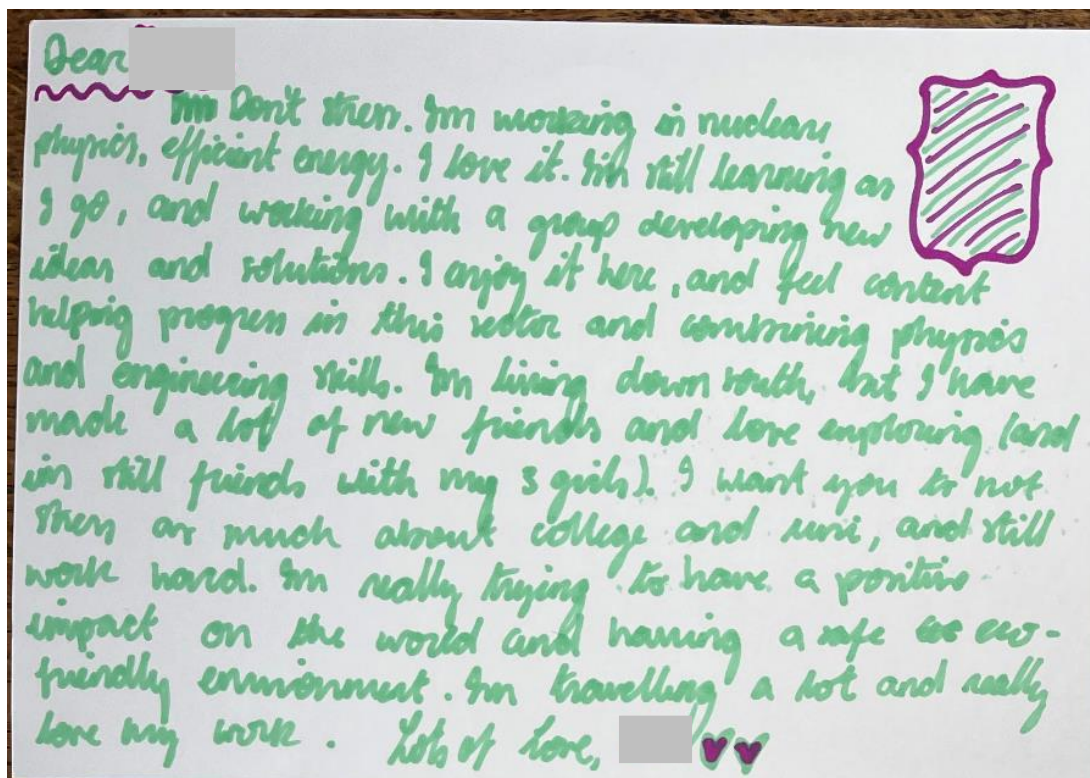 Dear
Don't stress. Im working in nuclear
physics, efficient energy. I love it. Im still learning as
I go, and working with a group developing new
ideas and solutions. I enjoy it here, and feel content
helping progress in this sector and combining physics
and engineering skills. Im living down south, but I have
made a lot of new friends and love exploring (and
im still friends with my 3 girls). I want you to not
stress as much about college and uni, and still
work hard. Im really trying to have a positive
impact on the world and having a safe eco-
friendly environment. Im travelling a lot and really
love my work. Lots of love,